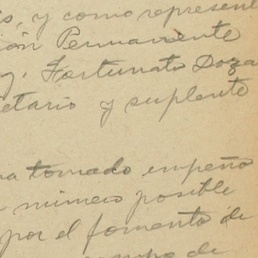 s, y como represent
ión Permanente
y. Fortunato Doza
etario y suplente
ha tomado empeño
número posible
por el fomento de
de